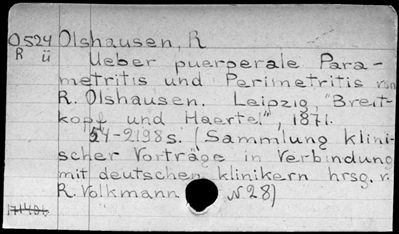 O524 Olshausen, R
R ü Ueber puerperale Para-
metritis und Perimetritis von
R. Olshausen. Leipzig, "Breit-
kopf und Haertel", 1871.
54-2198s. (Sammlung klini-
scher Vorträge in Verbindung
mit deutschen klinikern hrsg. v.
R. Volkmann N 28)